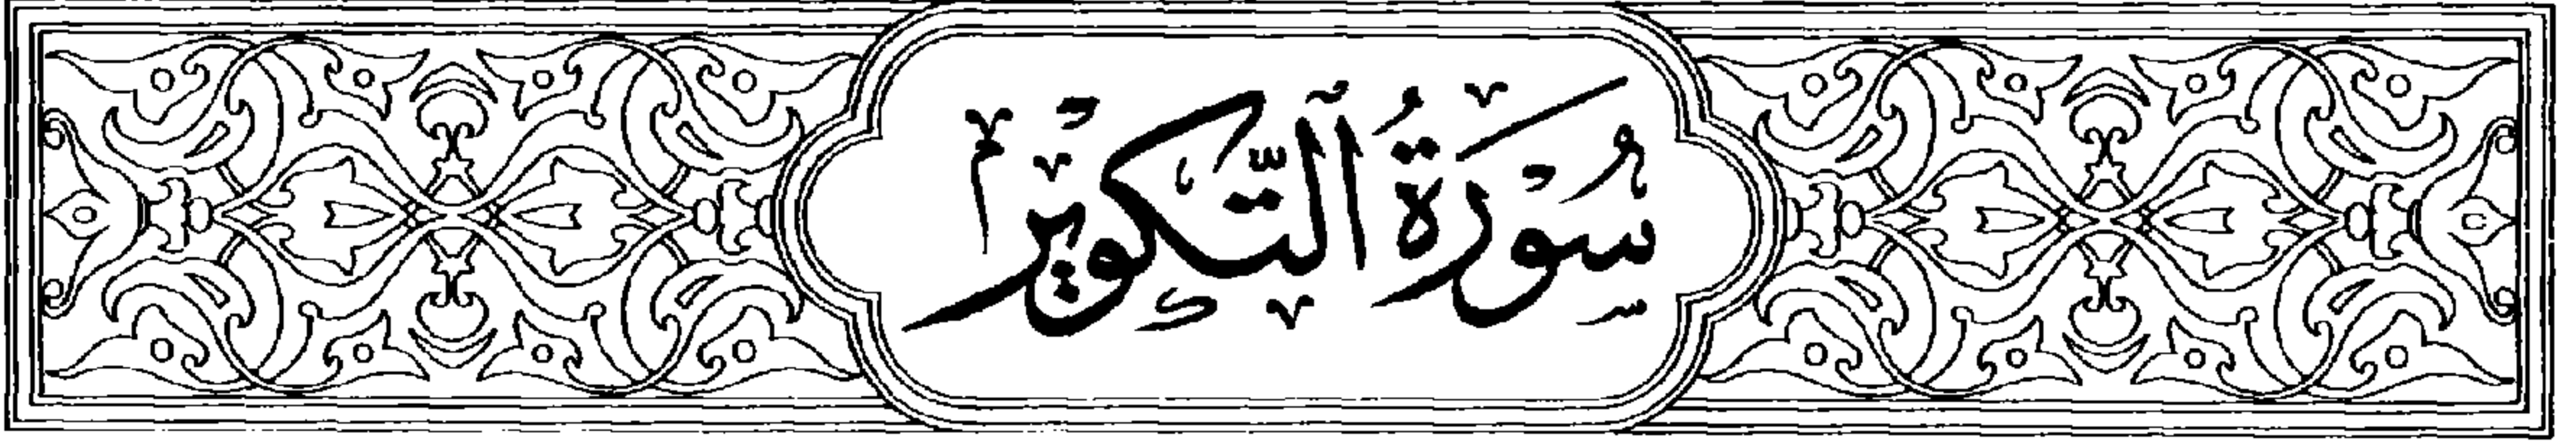 سُورَةُ ٱلتَّكْوِيرِ